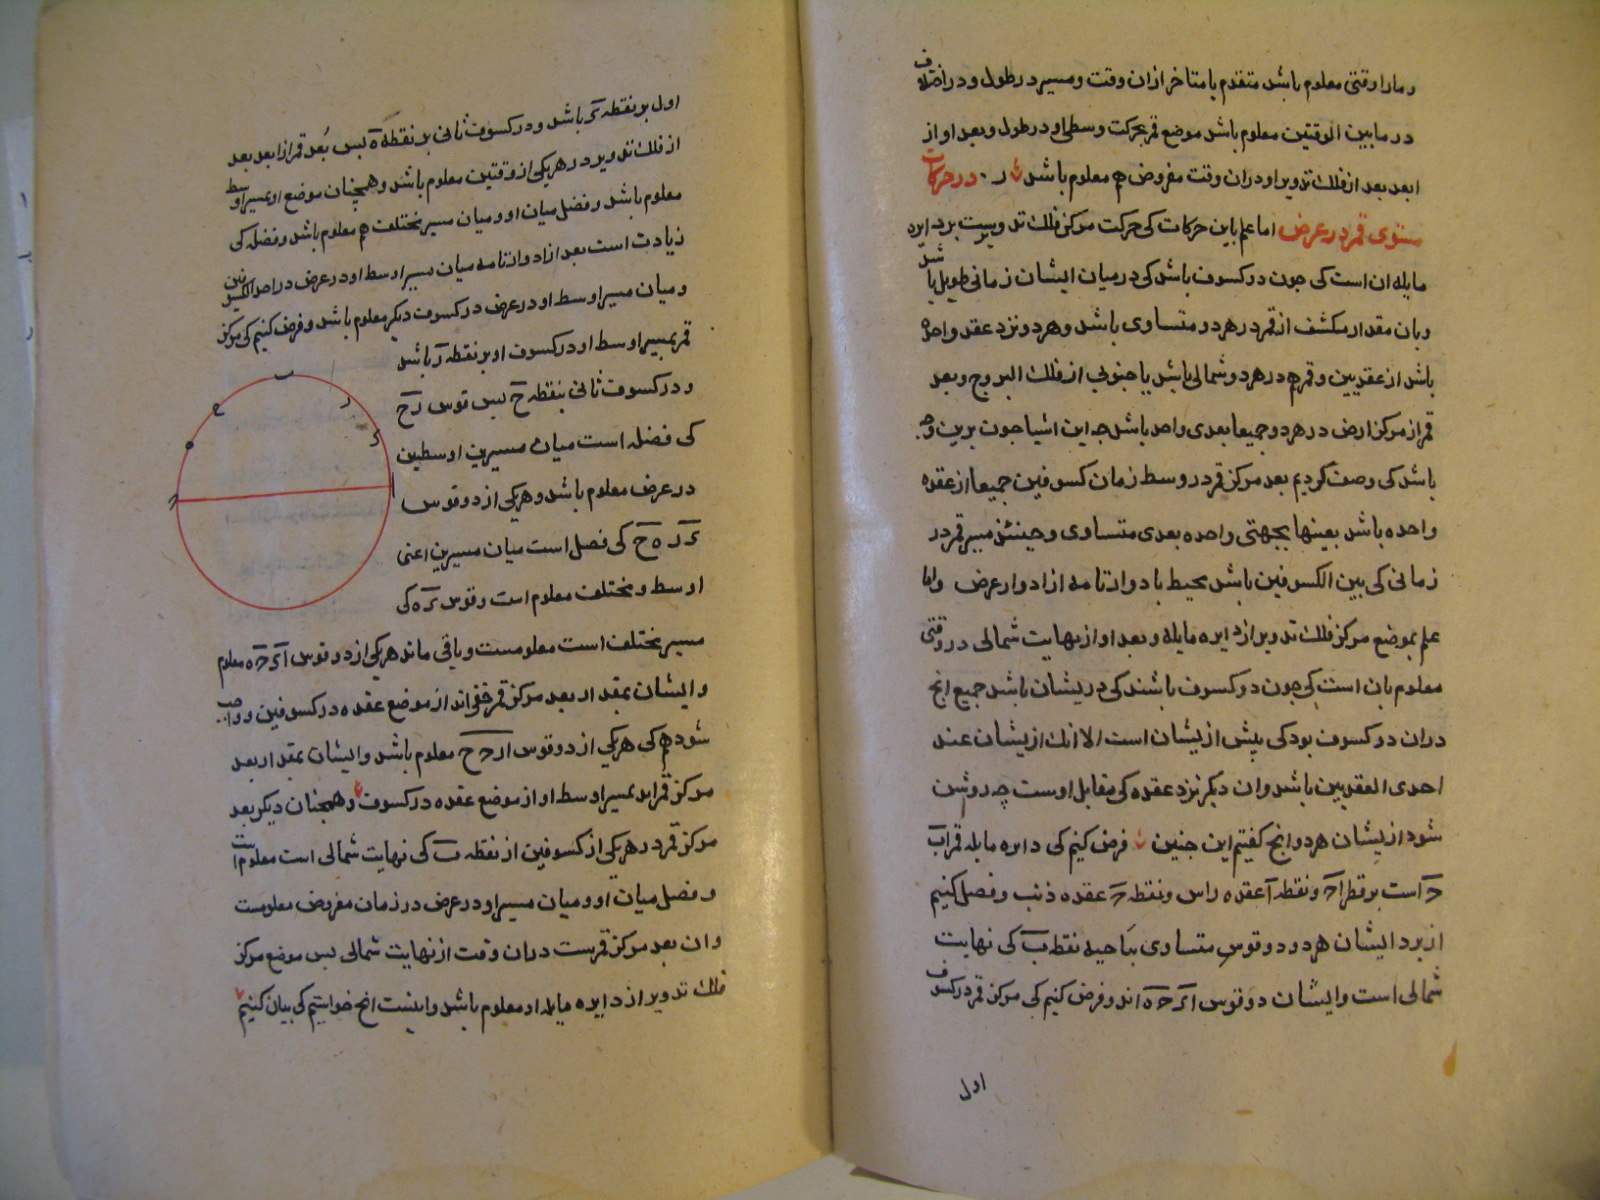 و مارا وقتی معلوم باشد متقدم یا متاخر ازان وقت و مسیر در طول و در اختلاف
در مابین الوقتین معلوم باشد موضع قمر بحرکت وسطی او در طول و بعد او از
ابعد بعد از فلك تدویر او دران وقت مفروض هم معلوم باشد ر در حرکات
مستوی قمر در عرض اما علم باین حرکات کی حرکت مرکز فلك تدویرست بر دایره
مایله ان است کی چون دو کسوف باشد کی در میان ایشان زمانی طویل باشد
وبان مقدار منکشف از قمر در هر دو متساوی باشد و هر دو نزد عقد واحده
باشد از عقدیین و قمر هم در هر دو شمالی باشد یا جنوبی از فلك البروج و بعد
قمر از مرکز ارض در هر دو جمیعا بعدی واحد باشد چه این اشیا چون برین وجه
باشد کی وصف کردیم بعد مرکز قمر در وسط زمان کسوفین جمیعا از عقده
واحده باشد بعینها بجهتی واحده بعدی متساوی و حینئذ مسیر قمر در
زمانی کی بین الکسوفین باشد محیط بادوار تامه از ادوار عرض واما
علم بموضع مرکز فلك تدویر از دایره مایله و بعد او از نهایت شمالی در وقتی
معلوم بان است کی چون دو کسوف باشند کی دریشان باشد جمیع انچ
دران دو کسوف بود کی پیش ازیشان است الا انك ازیشان عند
احدی العقدیین باشد وان دیگر نزد عقده کی مقابل اوست چه روشن
شود ازیشان هر دو انچ کفتیم این چنین فرض کنیم کی دایره مایله قمر اب
ج است بر قطر اج و نقطه ا عقده راس و نقطه ج عقده ذنب و فصل کنیم
از برد ایشان هر دو دو قوس متساوی بناحیه نقطه ب کی نهایت
شمالی است و ایشان دو قوس اد ج ه اند و فرض کنیم کی مرکز قمر در کسوف
اول
اول بر نقطه د باشد و در کسوف ثانی بر نقطه ه پس بعد قمر از ابعد بعد
از فلك تدویر در هر یکی از وقتین معلوم باشد و همچنان موضع او بمسیر اوسط
معلوم باشد و فضل میان او و میان مسیر مختلف هم معلوم باشد و فضله کی
زیادت است بعد از ادوار تامه میان مسیر اوسط او در عرض در احد الکسوفین
و میان مسیر اوسط او در عرض در کسوف دیگر معلوم باشد و فرض کنیم کی مرکز
قمر بمسیر اوسط او در کسوف او بر نقطه ر باشد
و در کسوف ثانی بنقطه ح پس قوس رح
کی فضله است میان مسیرین اوسطین
در عرض معلوم باشد و هر یکی از دو قوس
د ر ه ح کی فصل است میان مسیرین اعنی
اوسط و مختلف معلوم است و قوس د ه کی
مسیر مختلف است معلومست و باقی ماند هر یکی از دو قوس اد ج ه معلوم
و ایشان بمقدار بعد مرکز قمر خفی اند از موضع عقده در کسوفین و واجب
شود هم کی هر یکی از دو قوس ار ج ح معلوم باشد و ایشان بمقدار بعد
مرکز قمر اند بمسیر اوسط او از موضع عقده در کسوف و همچنان دیگر بعد
مرکز قمر در هر یکی از کسوفین از نقطه ب کی نهایت شمالی است معلوم است
و فصل میان او و میان مسیر او در عرض در زمان مفروض معلومست
و ان بعد مرکز قمرست دران وقت از نهایت شمالی پس موضع مرکز
فلك تدویر از دایره مایله او معلوم باشد و اینست انچ خواستیم کی بیان کنیم
ب
ر
د
ح
ه
ا
ج